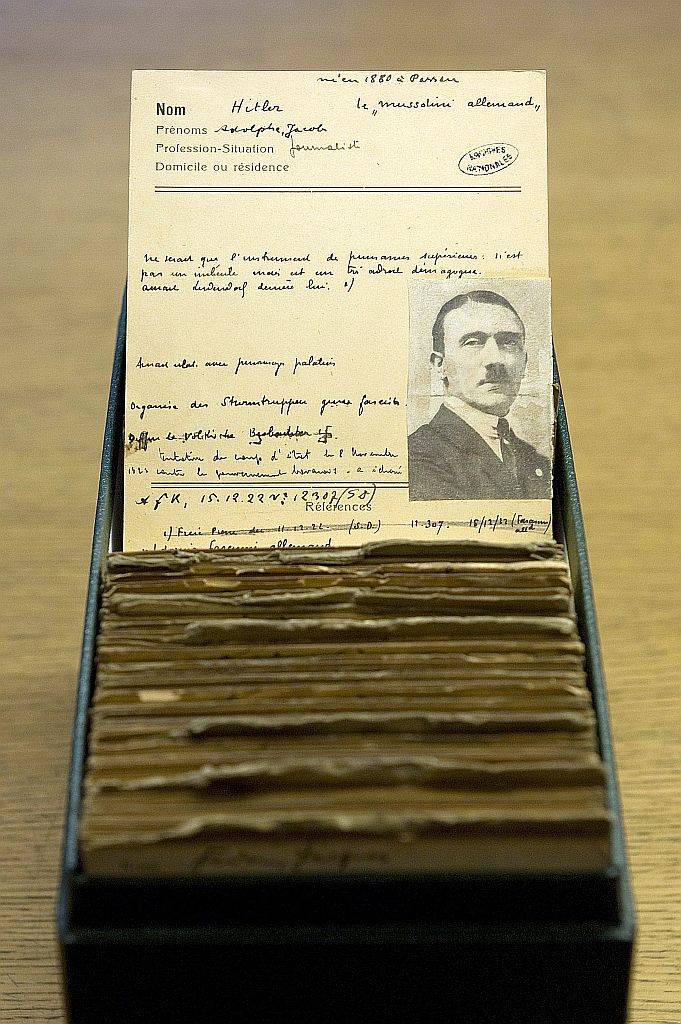 né en 1880 à Passau
Nom Hitler le "mussolini allemand"
Prénoms Adolphe, Jacob
Profession-Situation Journaliste
Domicile ou résidence
ARCHIVES NATIONALES
ne serait que l'instrument de puissances supérieures : n'est
pas un imbécile mais est un très adroit démagogue.
aurait Ludendorf derrière lui.
Organise des Sturmtruppen genre fascistes.
le Völkische Beobachter
tentative de coup d'état le 8 Novembre
1923 contre le gouvernement bavarois - a échoué
15.12.22 n° 12307 (SD)
Références
11.12.22 (S.D.) 11.307
allemand